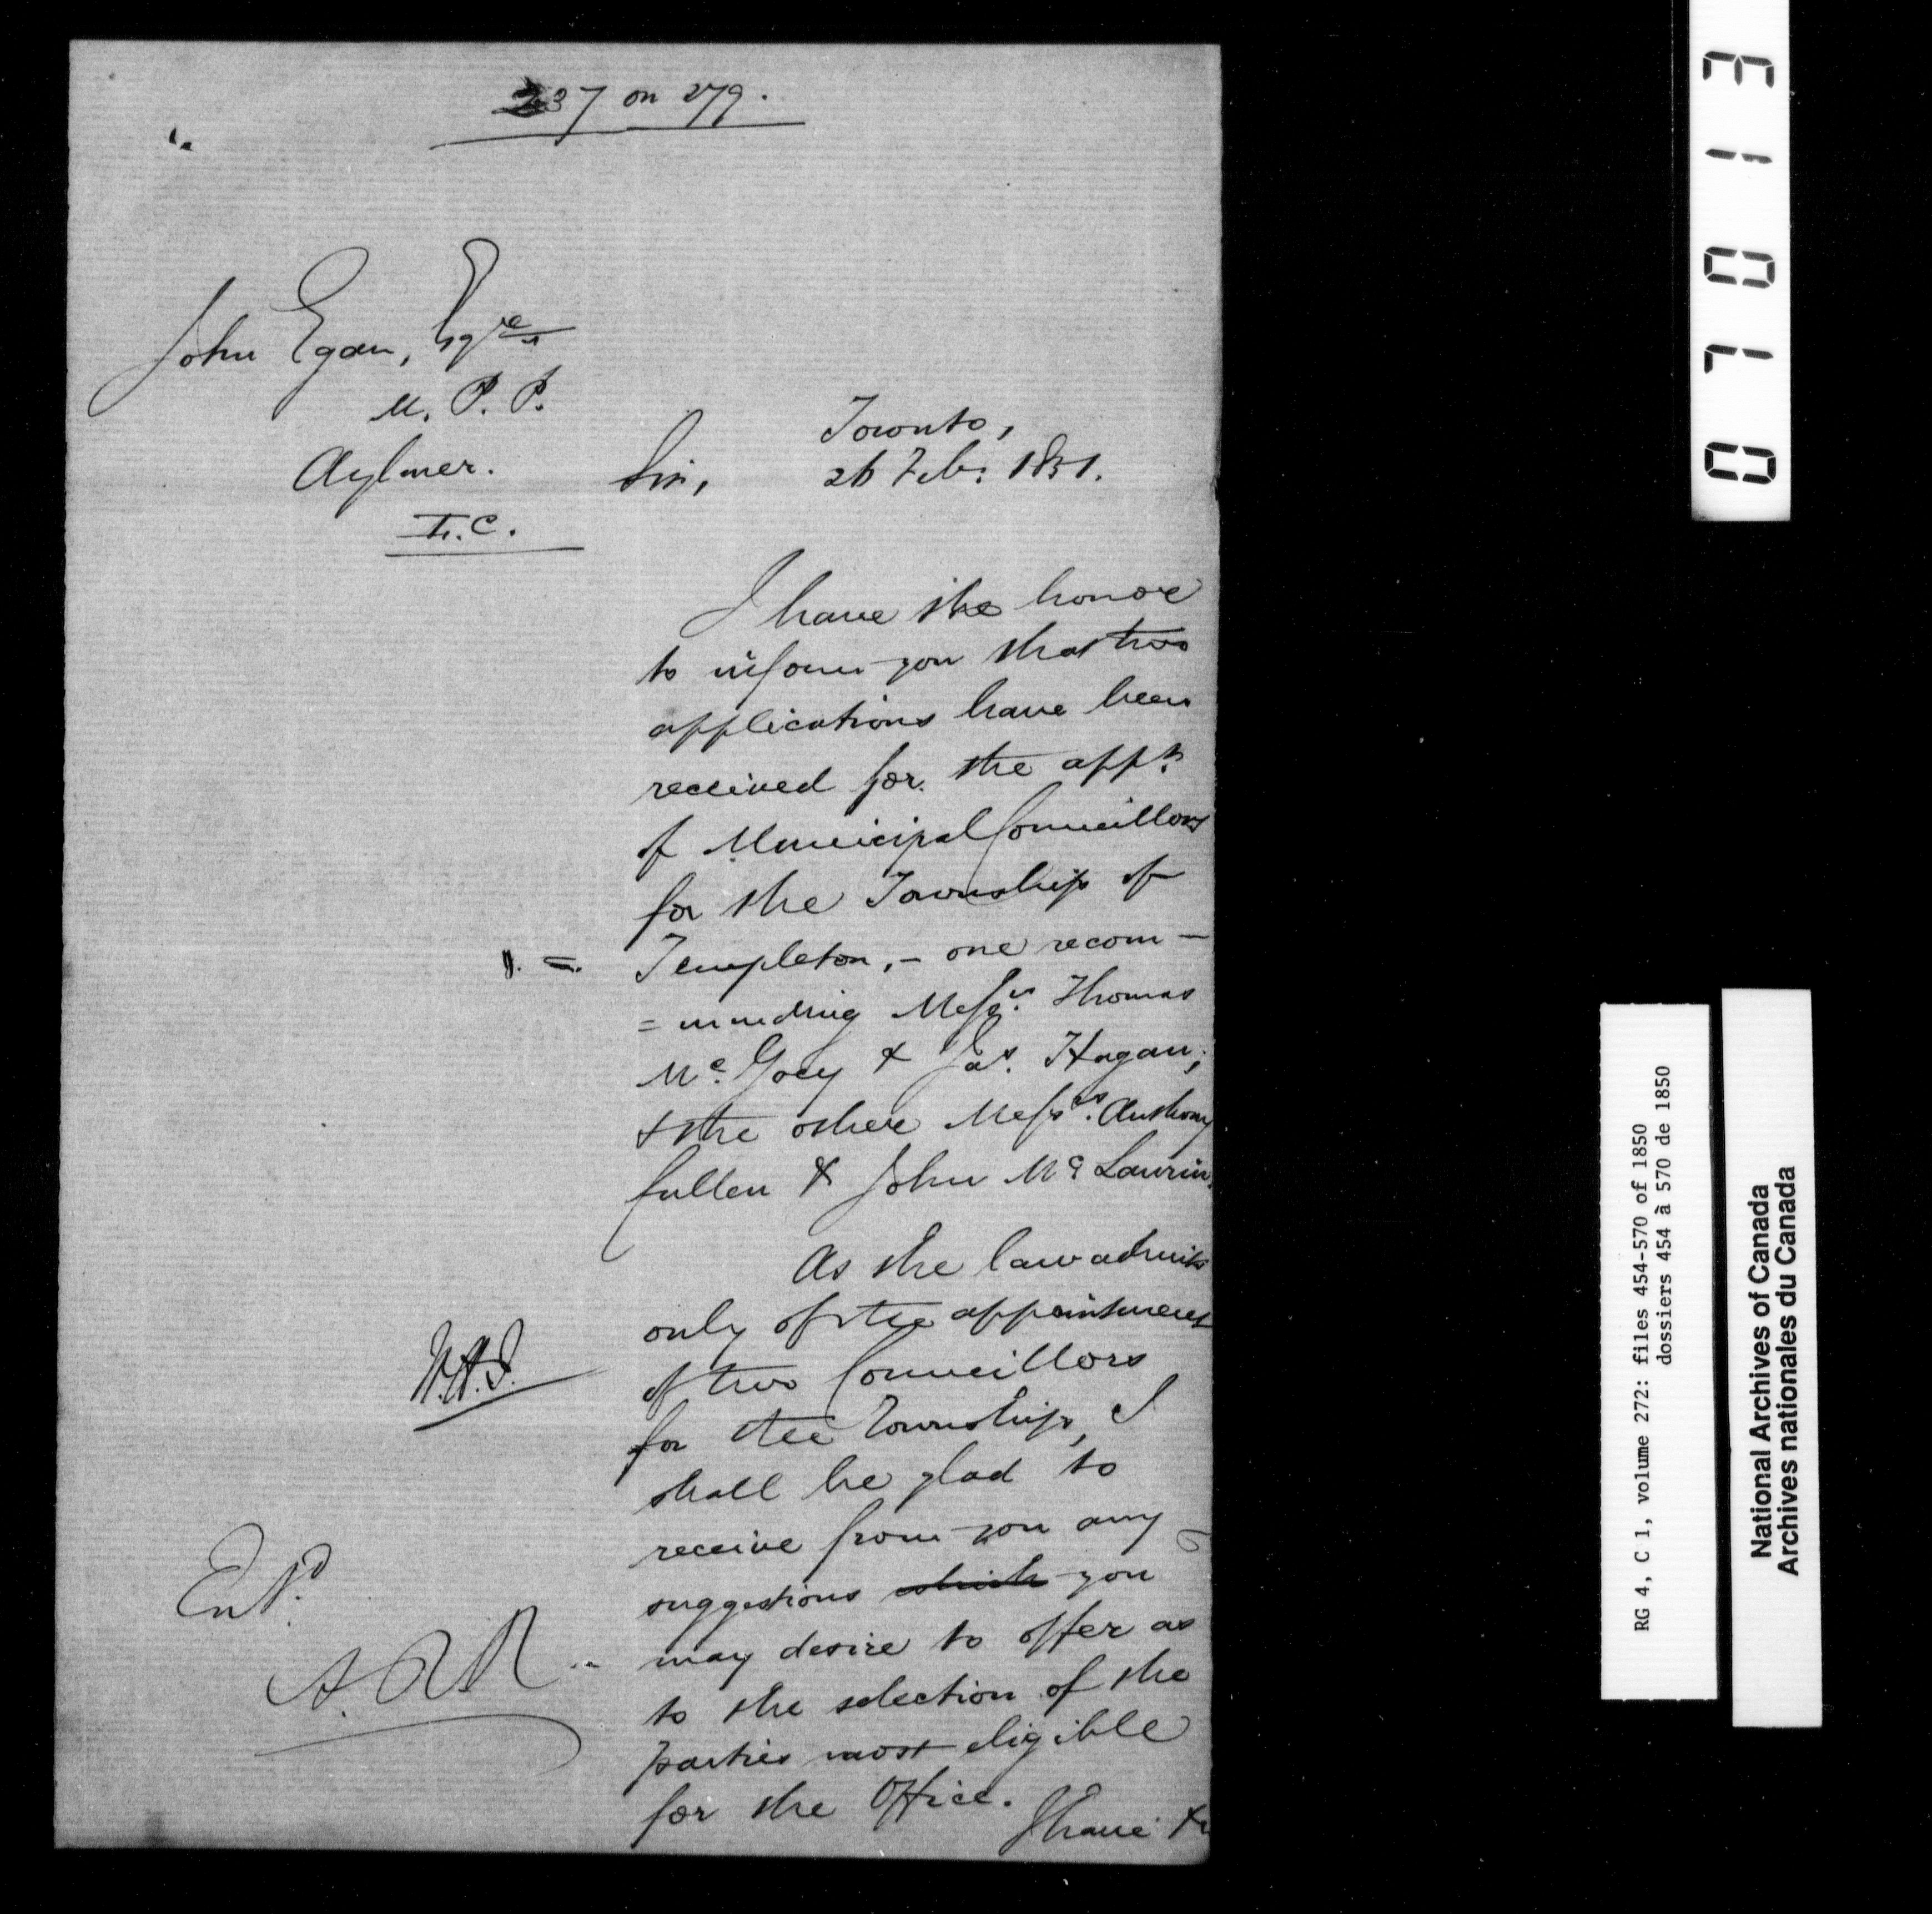 237 on 279.
John Egan, Esqre
M. P. P.
Aylmer.
L.C.
Toronto,
Sir, 26 Feb: 1851.
I have the honor
to inform you that two
applications have been
received for the appt.
of Municipal Councillors
for the Township of
Templeton, - one recom-
=mending Messrs. Thomas
Mc. Goey & Jas. Hagan;
& the other Messrs. Anthony
Cullen & John Mc Laurin.
As the law admits
only of the appointment
of two Councillors
for the Township, I
shall be glad to
receive from you any
suggestions which you
may desire to offer as
to the selection of the
parties most eligible
for the Office.
I have &c
Entd.
A.R.R.
07013
RG 4, C 1, volume 272: files 454-570 of 1850
dossiers 454 à 570 de 1850
National Archives of Canada
Archives nationales du Canada